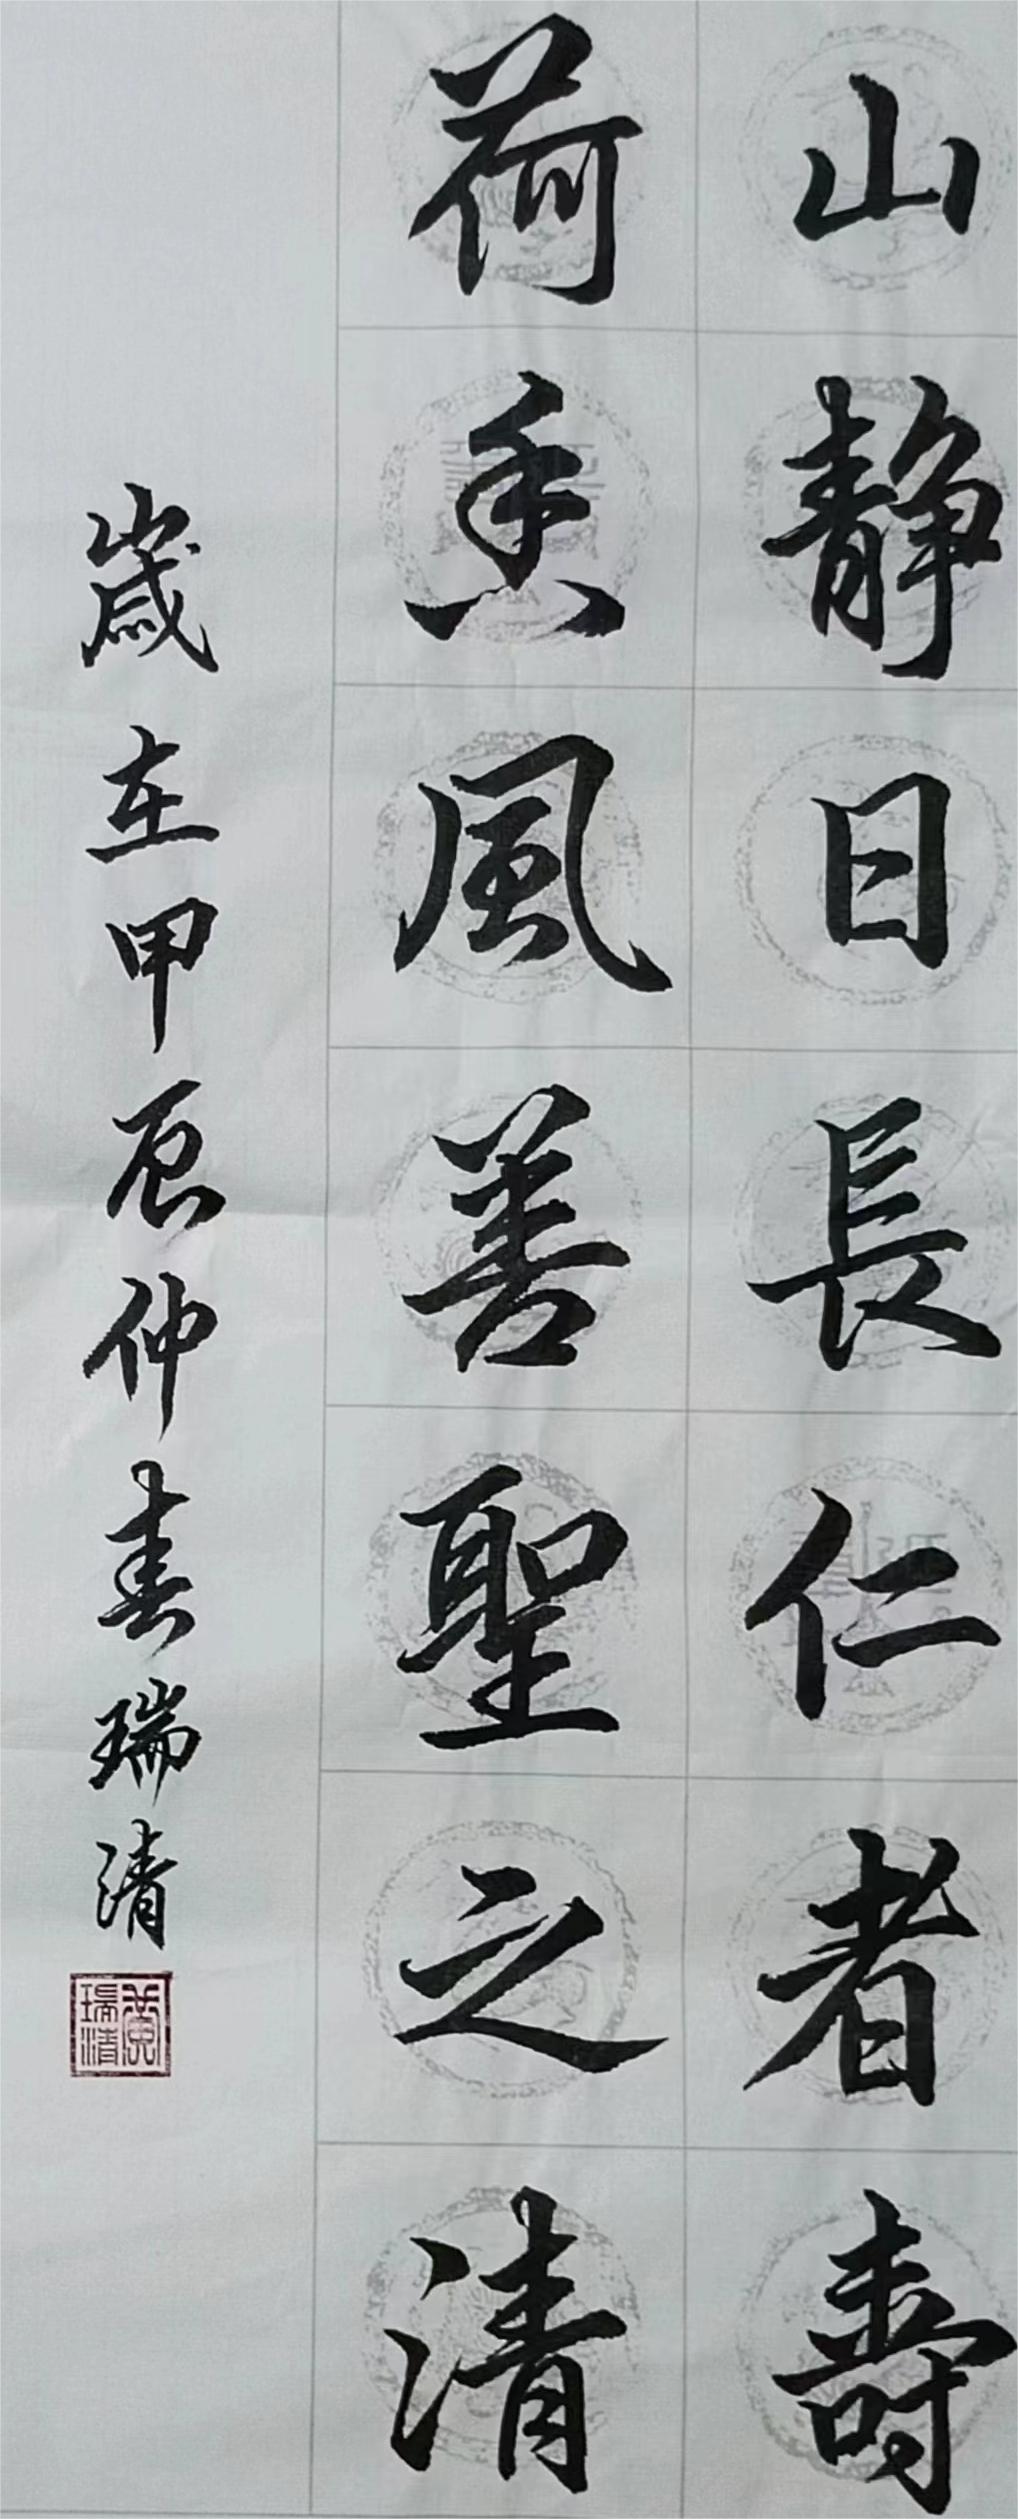 山静日長仁者壽
荷香風善聖之清
歲在甲辰仲春瑞清
黄瑞清